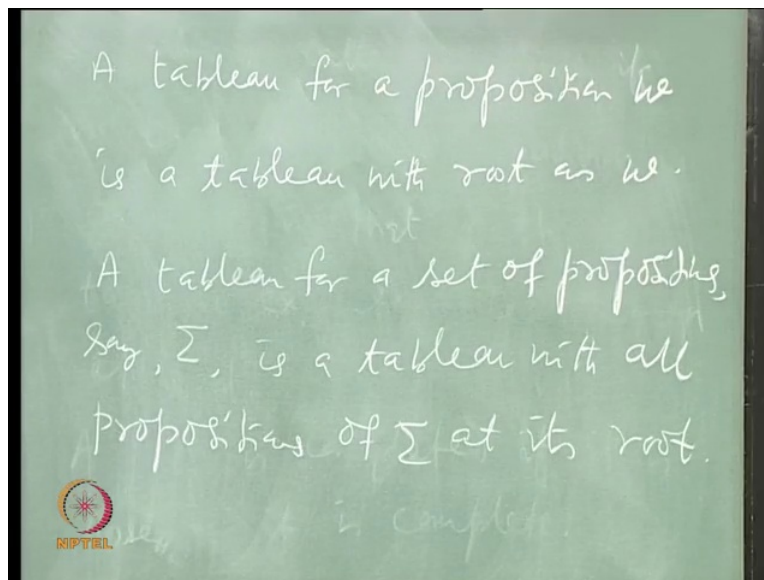 A tableau for a proposition w
is a tableau with root as w.
A tableau for a set of propositions,
say, Σ, is a tableau with all
propositions of Σ at its root.
NPTEL